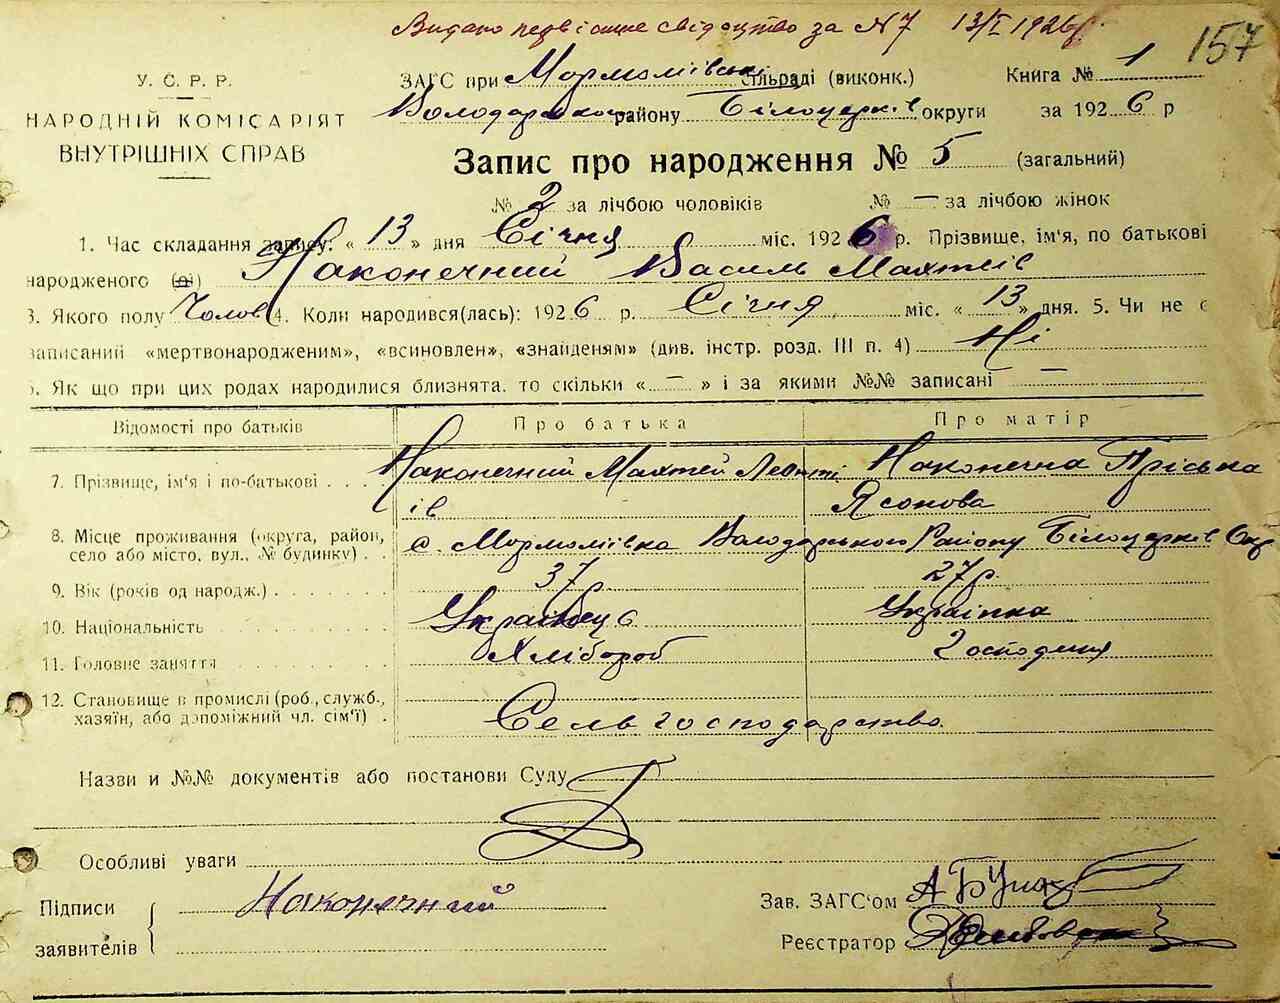 Видано первісне свідоцтво за № 7 13/I 1926 р.
157
У.С.Р.Р.
НАРОДНІЙ КОМІСАРІЯТ
ВНУТРІШНІХ СПРАВ
ЗАГС при Мормоліівські сільраді (виконк.) Книга № 1
Володарського району Білоцерків округи за 1926 р
Запис про народження № 5 (загальний)
№ 2 за лічбою чоловіків № — за лічбою жінок
1. Час складання запису: « 13 » дня Січня міс. 1926 р. Прізвище, ім'я, по батькові
народженого (ої) Наконечний Василь Махтеів
3. Якого полу Чолов 4. Коли народився(лась): 1926 р. Січня міс. « 13 » дня. 5. Чи не є
записаний «мертвонародженим», «всиновлен», «знайденям» (див. інстр. розд. III п. 4) Ні
6. Як що при цих родах народилися близнята, то скільки « — » і за якими №№ записані —
Відомості про батьків Про батька Про матір
7. Прізвище, ім'я і по-батькові . . . Наконечний Махтей Леонті Наконечна Пріська
ів Ясонова
8. Місце проживання (округа, район,
село або місто, вул., № будинку) . . с. Мормоліівка Володарського Району Білоцерків Окр
9. Вік (років од народж.) 37р. 27р.
10. Національність Українець Українка
11. Головне заняття Хлібороб Господиня
12. Становище в промислі (роб., служб.,
хазяїн, або допоміжний чл. сім'ї) . Сельгосподарство
Назви и №№ документів або постанови Суду
Особливі уваги
Підписи
заявителів
Наконячний
Зав. ЗАГС'ом
Реєстратор